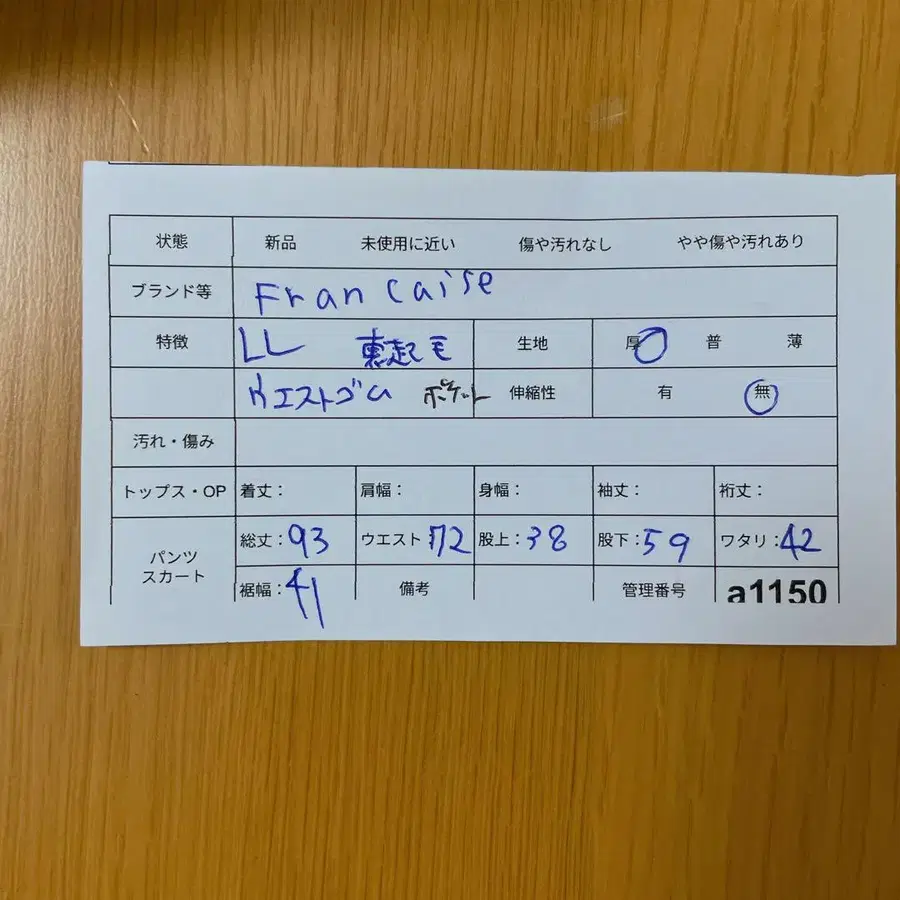 状態 新品 未使用に近い 傷や汚れなし やや傷や汚れあり
ブランド等 Francaise
特徴 LL 裏起毛 生地 厚 普 薄
ウエストゴム ポケット 伸縮性 有 無
汚れ・傷み
トップス・OP 着丈： 肩幅： 身幅： 袖丈： 裄丈：
パンツ スカート 総丈：93 ウエスト：72 股上：38 股下：59 ワタリ：42
裾幅：41 備考 管理番号 a1150